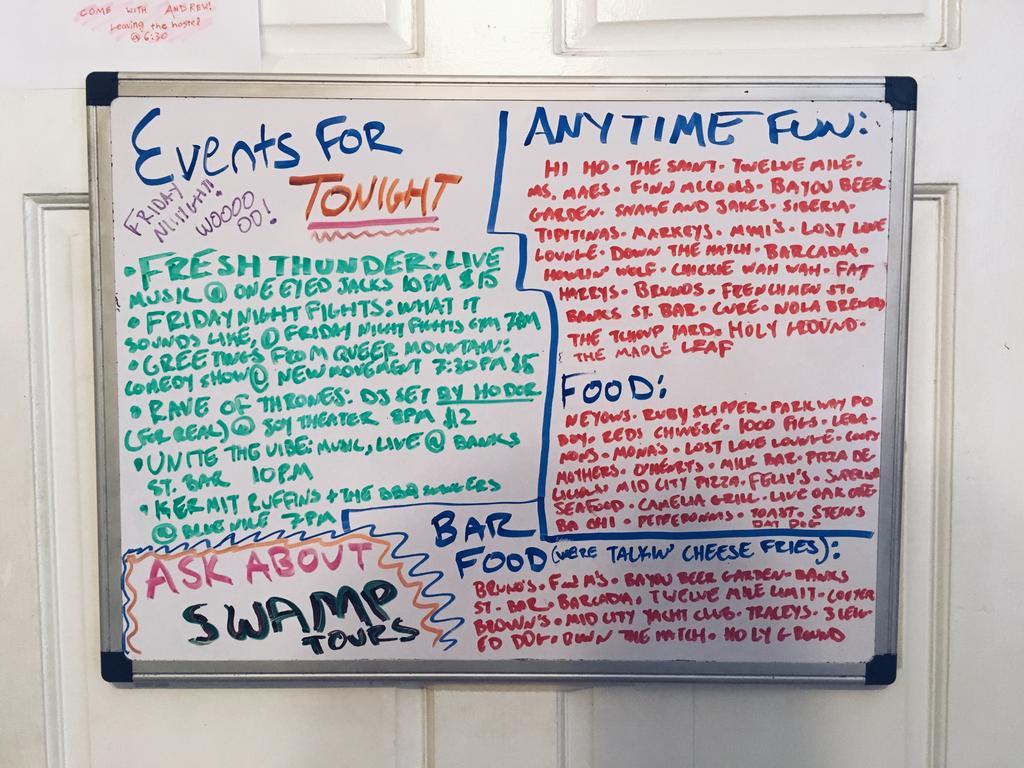 COME WITH ANDREW!
Leaving the hostel
@ 6:30
Events FOR
TONIGHT
FRIDAY
NIIIIGHT!!
WOOOO
OO!
• FRESH THUNDER: LIVE
MUSIC @ ONE EYED JACKS 10PM $15
• FRIDAY NIGHT FIGHTS: WHAT IT
SOUNDS LIKE, @ FRIDAY NIGHT FIGHTS GYM 7PM
• GREETINGS FROM QUEER MOUNTAIN:
COMEDY SHOW @ NEW MOVEMENT 7:30PM $5
• RAVE OF THRONES: DJ SET BY HODOR
(FOR REAL) @ JOY THEATER 8PM $12
• UNITE THE VIBE: MUSIC, LIVE @ BANKS
ST. BAR 10PM
• KERMIT RUFFINS + THE BBQ SWINGERS
@ BLUE NILE 7PM
ASK ABOUT
SWAMP
TOURS
ANYTIME FUN:
HI HO • THE SAINT • TWELVE MILE •
MS. MAES • FINN MCCOOLS • BAYOU BEER
GARDEN • SNAKE AND JAKES • SIBERIA •
TIPITINAS • MARKEYS • MIMI'S • LOST LOVE
LOUNGE • DOWN THE HATCH • BARCADIA •
HOWLIN' WOLF • CHICKIE WAH WAH • FAT
HARRYS • BRUNOS • FRENCHMEN ST. •
BANKS ST. BAR • CURE • NOLA BREWING
THE TCHOUP YARD • HOLY GROUND •
THE MAPLE LEAF
FOOD:
NEYOWS • RUBY SLIPPER • PARKWAY PO
BOY • REDS CHINESE • 1000 FIGS • LEBA-
NONS • MONA'S • LOST LOVE LOUNGE •
MOTHERS • O'HENRYS • MILK BAR • PIZZA DE-
LICIOUS • MID CITY PIZZA • FELIX'S •
SEAFOOD • CAMELIA GRILL • LIVE OAK CAFE •
BA CHI • PEPPERONIS • TOAST • STEINS
DAT DOG
BAR
FOOD (WE'RE TALKIN' CHEESE FRIES):
BRUNO'S • F&M'S • BAYOU BEER GARDEN • BANKS
ST. BAR • BARCADIA • TWELVE MILE LIMIT • COOTER
BROWN'S • MID CITY YACHT CLUB • TRACEYS • 3 LEGG-
ED DOG • DOWN THE HATCH • HOLY GROUND